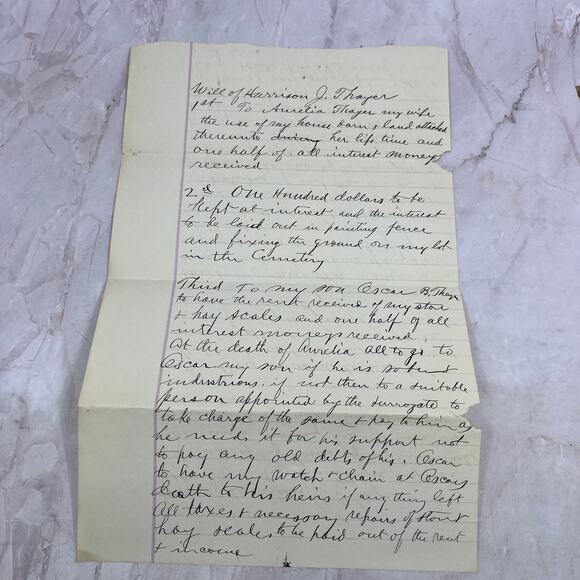 Will of Harrison J. Thayer
1st To Aurelia Thayer my wife
the use of my house barn & land attached
thereunto during her life time and
one half of all interest moneys
received
2d One Hundred dollars to be
Kept at interest and the interest
to be laid out in painting fence
and fixing the ground on my lot
in the Cemetery
Third To my son Oscar B. Thayer
to have the rent received of my store
& hay scales and one half of all
interest moneys received.
At the death of Aurelia all to go to
Oscar my son if he is sober &
industrious, if not then to a suitable
person appointed by the surrogate to
take charge of the same & pay to him as
he needs it for his support not
to pay any old debts of his. Oscar
to have my watch & chain at Oscars
death to his heirs if any thing left
All taxes & necessary repairs of store &
hay scales to be paid out of the rent
& income